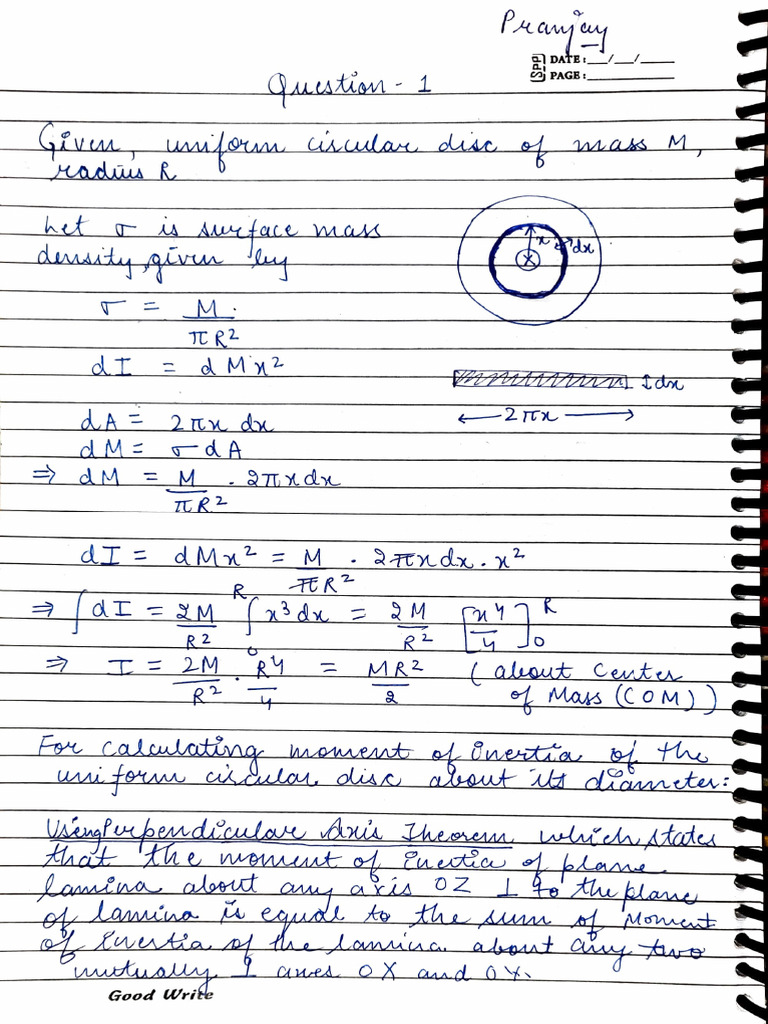 Pranjay
SPP DATE: __/__/____
PAGE: ________
Question - 1
Given, uniform circular disc of mass M,
radius R
Let σ is surface mass
density, given by
x dx
σ = M
πR²
dI = dMx²
dx
2πx
dA = 2πx dx
dM = σ dA
⇒ dM = M/πR² . 2πxdx
dI = dMx² = M/πR² . 2πxdx . x²
⇒ ∫dI = 2M/R² ∫₀ᴿ x³dx = 2M/R² [x⁴/4]₀ᴿ
⇒ I = 2M/R² . R⁴/4 = MR²/2 (about Center
of Mass (COM))
For calculating moment of inertia of the
uniform circular disc about its diameter:
Using Perpendicular Axis Theorem which states
that the moment of inertia of plane
lamina about any axis OZ ⊥ to the plane
of lamina is equal to the sum of Moment
of inertia of the lamina about any two
mutually ⊥ axes OX and OY.
Good Write